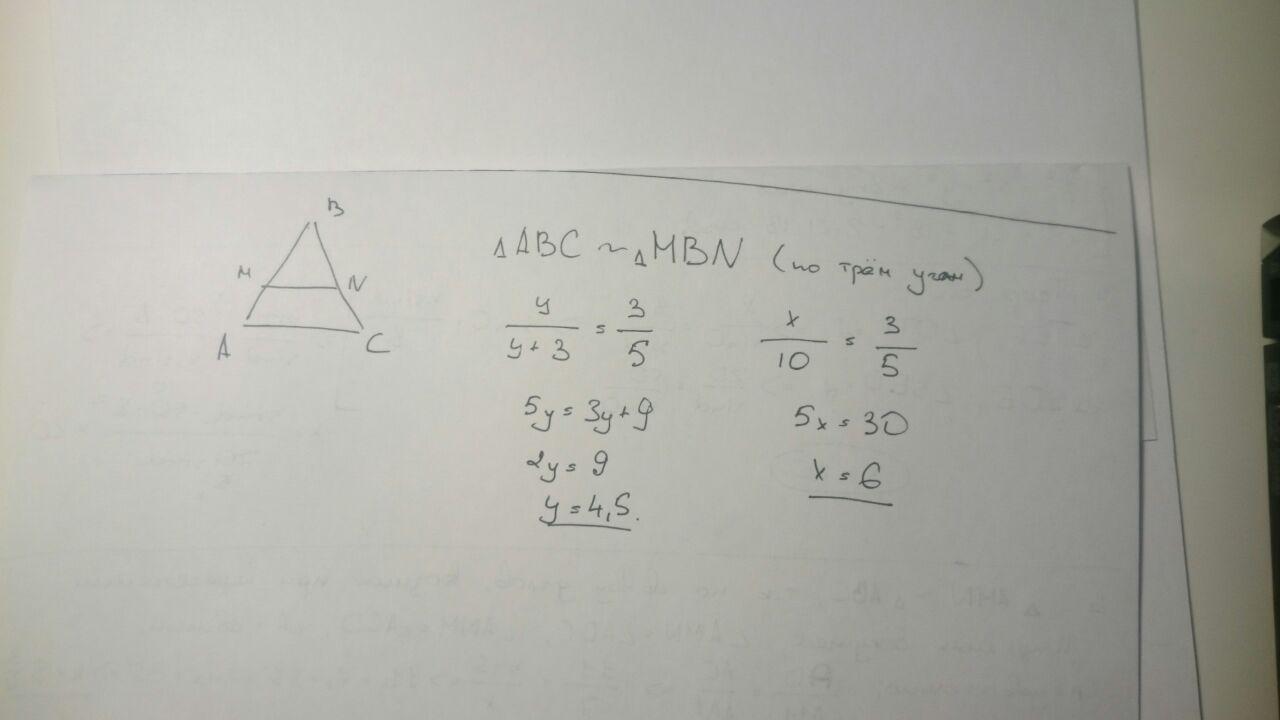 B
M
N
A
C
△ABC ~ △MBN (по трём углам)
y/(y+3) = 3/5
5y = 3y+9
2y = 9
y = 4,5.
x/10 = 3/5
5x = 30
x = 6